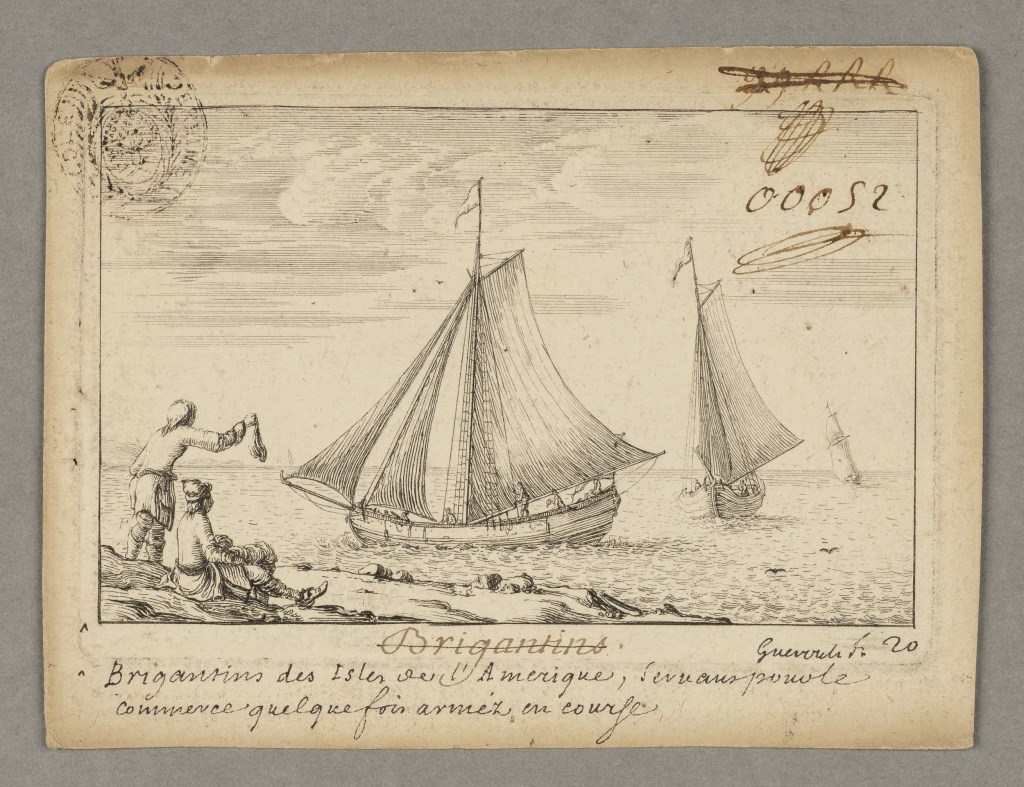 00052
Brigantins.
Gueroult f. 20
Brigantins des Isles de l'Amerique, servans pour le
commerce quelque fois arméz en course